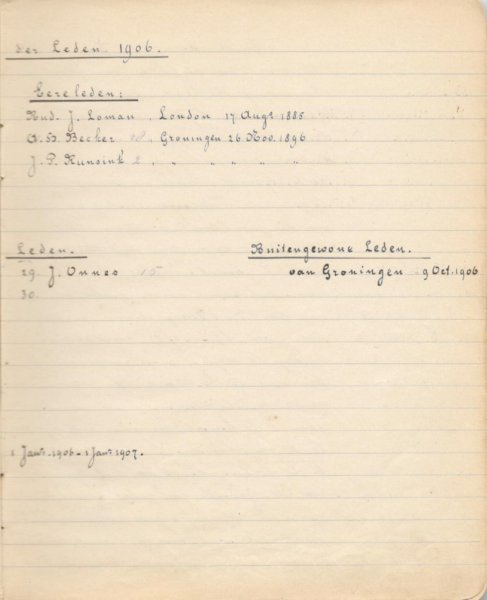 der Leden 1906.
Eereleden:
Rud. J. Loman, London 17 Augt 1885
O.H. Becker 18, Groningen 26 Nov. 1896
J. P. Kunsink 2, „ „ „ „ „
Leden.
Buitengewone Leden.
29. J. Onnes 15
van Groningen 9 Oct. 1906
30.
1 Janr. 1906 - 1 Janr 1907.